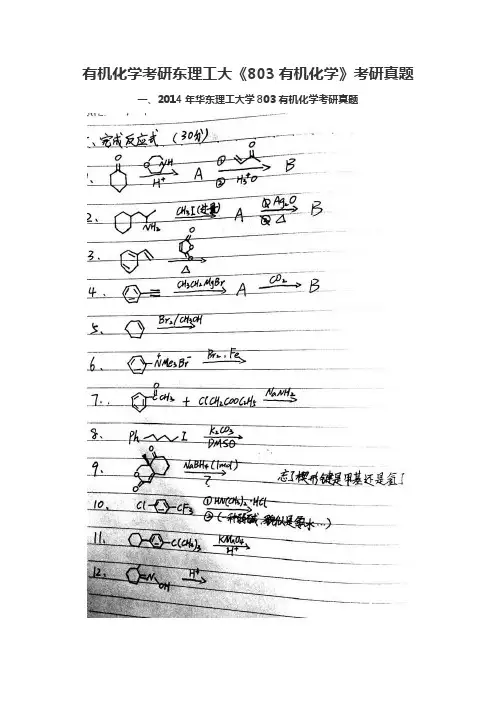 有机化学考研东理工大《803有机化学》考研真题
一、2014年华东理工大学803有机化学考研真题
一、完成反应式 (30分)
1、 O NH H+ A ① O ② H3+O B
2、 NH2 CH3I(过量) A ① Ag2O ② △ B
3. O O O △
4. CH3CH2MgBr A CO2 B
5、 Br2/CH3OH
6. +NMe3Br- Br2, Fe
7. O CCH3 + ClCH2COOC2H5 NaNH2
8. Ph I K2CO3 DMSO
9. O O NaBH4(1mol) ? 忘了楔形键是甲基还是氢了
10、 Cl CF3 ① HN(CH3)2·HCl ② (一种
11. C(CH3)3 KMnO4 H+
12. N OH H+